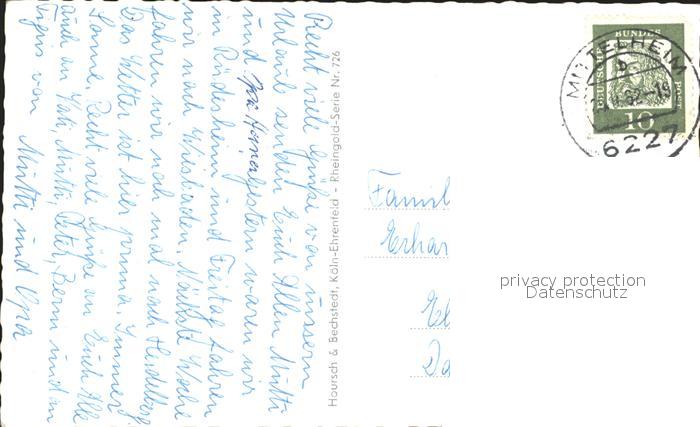 Recht viele Grüße von unserm
Urlaub senden Euch Allen Mutti
und Opa. Gestern waren wir
in Rüdesheim und Freitag fahren
wir nach Wiesbaden. Nächste Woche
fahren wir noch mal nach Heidelberg
Das Wetter ist hier prima. Immer
Sonne. Recht viele Grüße an Euch Alle
auch an Mutti, Peter, Bernd und an
von Mutti und Opa
Hoursch & Bechstedt, Köln-Ehrenfeld - Rheingold-Serie Nr. 726
DEUTSCHE BUNDESPOST
10
MITTELHEIM
b
62-19
6227
Famil
Erhar
El
Da
privacy protection
Datenschutz